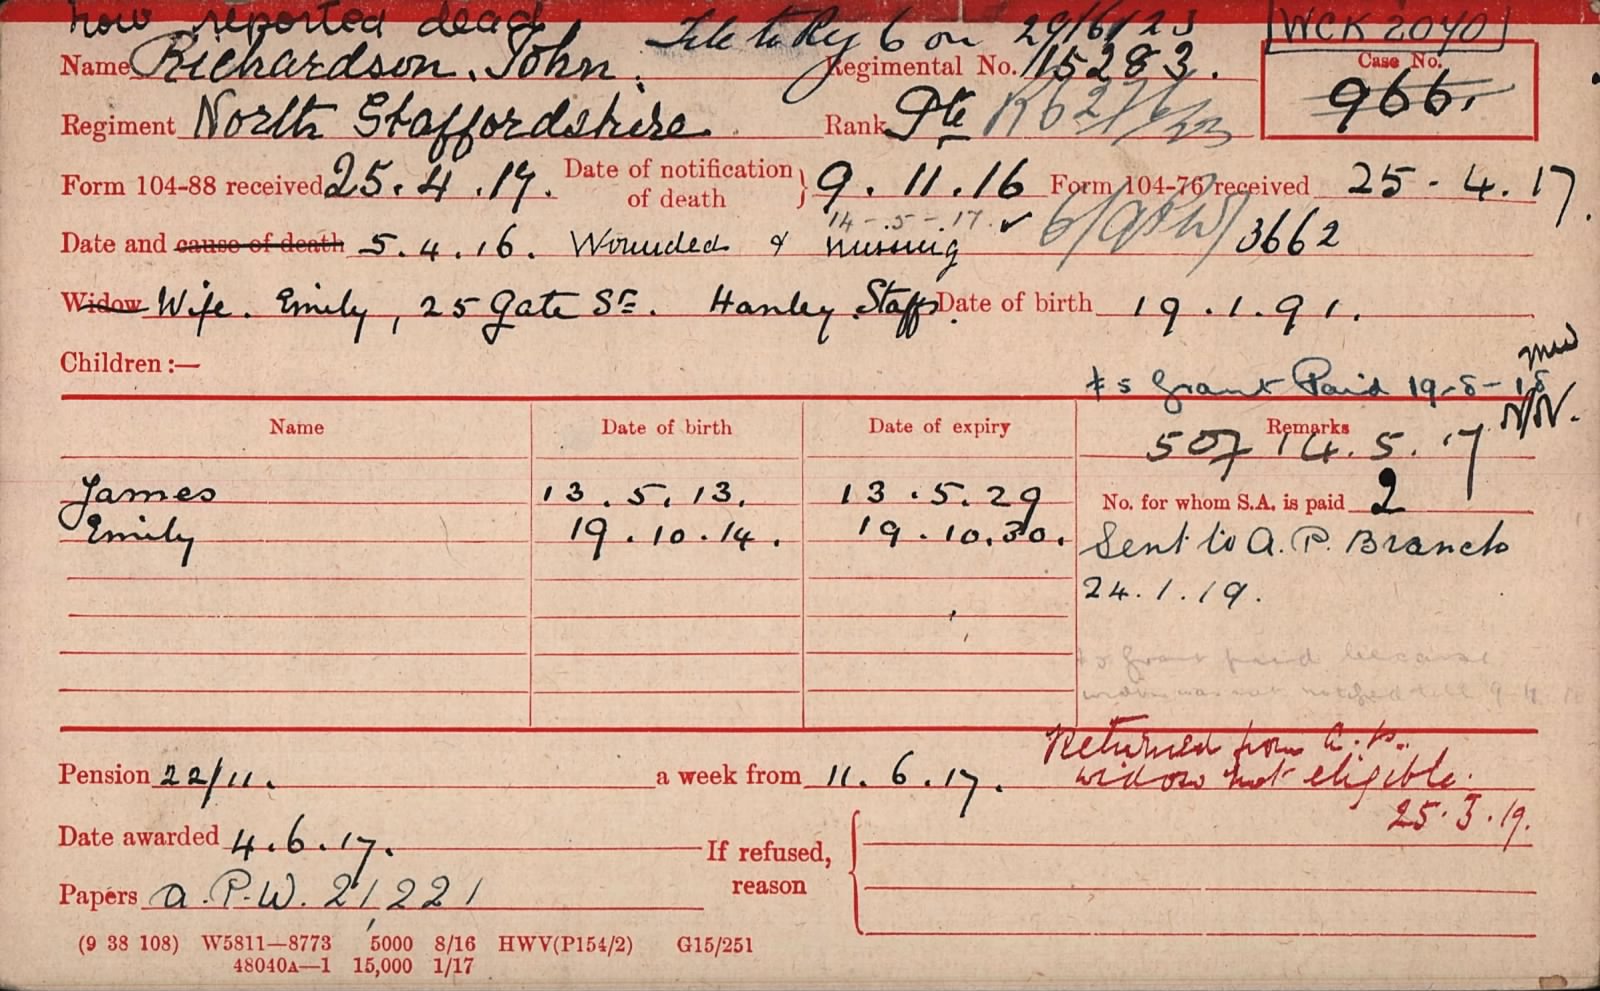 now reported dead
File to Reg 6 on 29/6/23
WCK 2040
Name Richardson. John. Regimental No. 15283. Case No.
966.
Regiment North Staffordshire Rank Pte
Form 104-88 received 25.4.17. Date of notification of death } 9.11.16 Form 104-76 received 25-4.17.
14-5-17. ✓
Date and cause of death 5.4.16. Wounded & missing 3662
Widow Wife. Emily, 25 Gate St. Hanley Staffs. Date of birth 19.1.91.
Children :—
£5 Grant Paid 19-8-18
Name Date of birth Date of expiry Remarks
507 14.5.17
James 13.5.13. 13.5.29 No. for whom S.A. is paid 2
Emily 19.10.14. 19.10.30. Sent to A.P. Branch
24.1.19.
£5 Grant paid because
widow was not notified till
Returned from A.P.
Pension 22/11. a week from 11.6.17. widow not eligible.
25.3.19.
Date awarded 4.6.17. If refused, reason
Papers A.P.W. 21221
(9 38 108) W5811—8773 5000 8/16 HWV(P154/2) G15/251
48040A—1 15,000 1/17